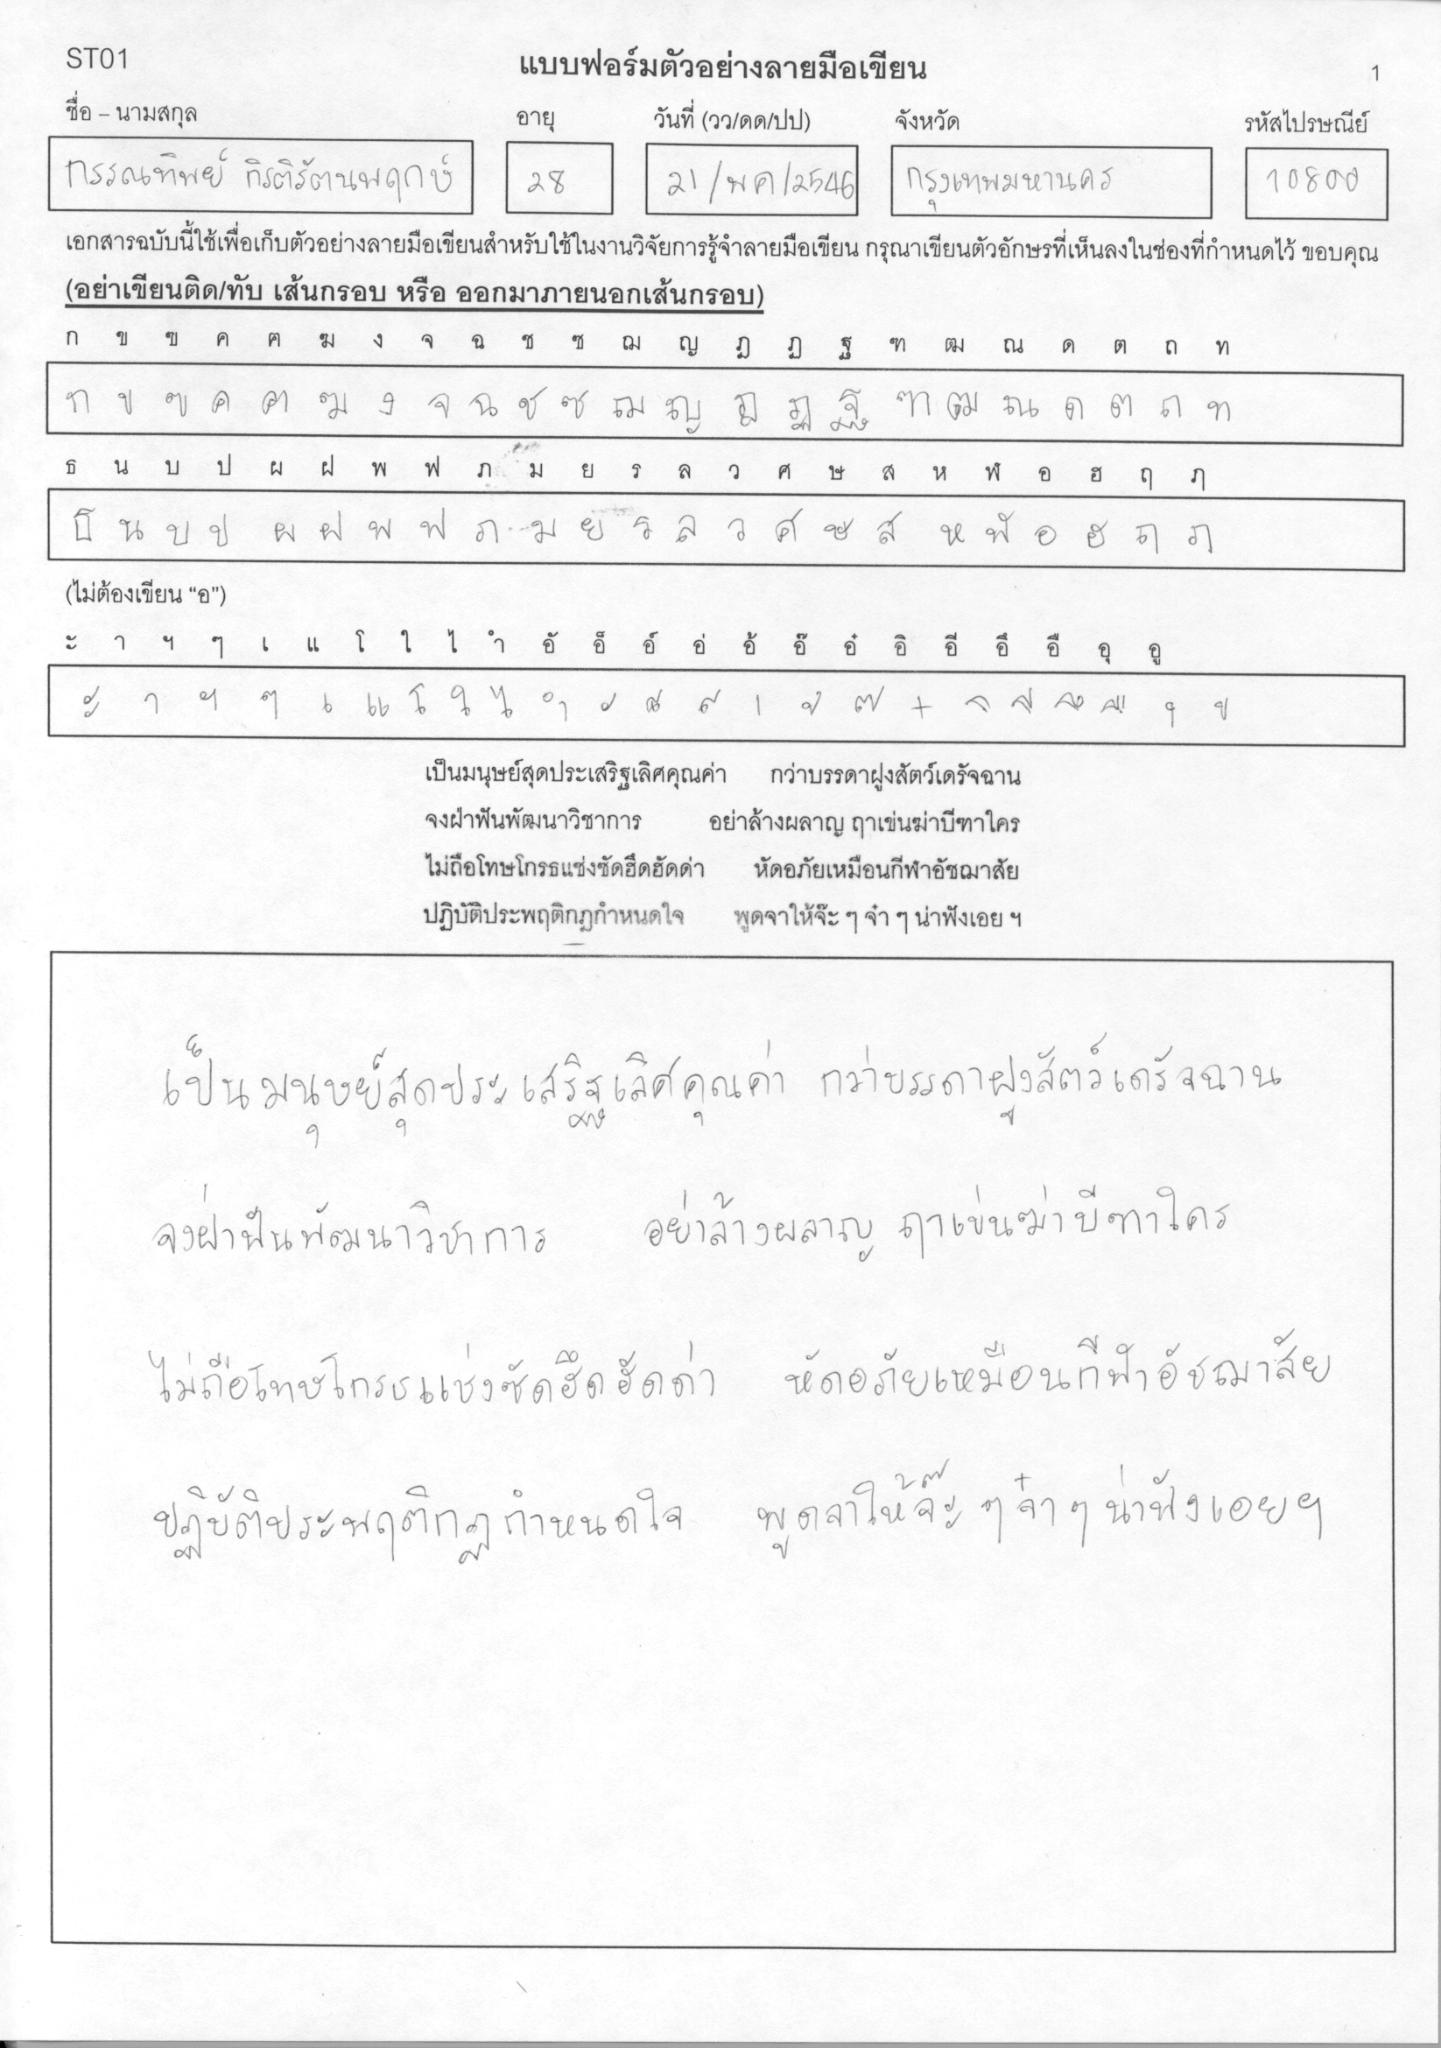 ST01
แบบฟอร์มตัวอย่างลายมือเขียน
1
ชื่อ – นามสกุล อายุ วันที่ (วว/ดด/ปป) จังหวัด รหัสไปรษณีย์
กรรณทิพย์ กิรติรัตนพฤกษ์ 28 21/พค/2546 กรุงเทพมหานคร 10800
เอกสารฉบับนี้ใช้เพื่อเก็บตัวอย่างลายมือเขียนสำหรับใช้ในงานวิจัยการรู้จำลายมือเขียน กรุณาเขียนตัวอักษรที่เห็นลงในช่องที่กำหนดไว้ ขอบคุณ
(อย่าเขียนติด/ทับ เส้นกรอบ หรือ ออกมาภายนอกเส้นกรอบ)
ก ข ฃ ค ฅ ฆ ง จ ฉ ช ซ ฌ ญ ฎ ฏ ฐ ฑ ฒ ณ ด ต ถ ท
ก ข ฃ ค ฅ ฆ ง จ ฉ ช ซ ฌ ญ ฎ ฏ ฐ ฑ ฒ ณ ด ต ถ ท
ธ น บ ป ผ ฝ พ ฟ ภ ม ย ร ล ว ศ ษ ส ห ฬ อ ฮ ฤ ฦ
ธ น บ ป ผ ฝ พ ฟ ภ ม ย ร ล ว ศ ษ ส ห ฬ อ ฮ ฤ ฦ
(ไม่ต้องเขียน “อ”)
ะ า ฯ ๆ เ แ โ ใ ไ ำ อั อ็ อ์ อ่ อ้ อ๊ อ๋ อิ อี อึ อื อุ อู
ะ า ฯ ๆ เ แ โ ใ ไ ำ ั ็ ์ ่ ้ ๊ ๋ ิ ี ึ ื ุ ู
เป็นมนุษย์สุดประเสริฐเลิศคุณค่า กว่าบรรดาฝูงสัตว์เดรัจฉาน
จงฝ่าฟันพัฒนาวิชาการ อย่าล้างผลาญ ฤาเข่นฆ่าบีฑาใคร
ไม่ถือโทษโกรธแช่งซัดฮึดฮัดด่า หัดอภัยเหมือนกีฬาอัชฌาสัย
ปฏิบัติประพฤติกฎกำหนดใจ พูดจาให้จ๊ะ ๆ จ๋า ๆ น่าฟังเอย ฯ
เป็นมนุษย์สุดประเสริฐเลิศคุณค่า กว่าบรรดาฝูงสัตว์เดรัจฉาน
จงฝ่าฟันพัฒนาวิชาการ อย่าล้างผลาญ ฤาเข่นฆ่าบีฑาใคร
ไม่ถือโทษโกรธแช่งซัดฮึดฮัดด่า หัดอภัยเหมือนกีฬาอัชฌาสัย
ปฏิบัติประพฤติกฏกำหนดใจ พูดจาให้จ๊ะ ๆ จ๋า ๆ น่าฟังเอยฯ